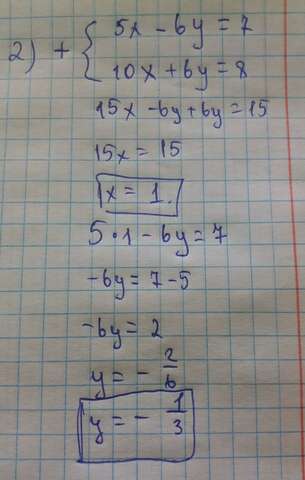 2) + { 5x - 6y = 7
10x + 6y = 8
15x - 6y + 6y = 15
15x = 15
x = 1.
5 · 1 - 6y = 7
-6y = 7 - 5
-6y = 2
y = - 2/6
y = - 1/3